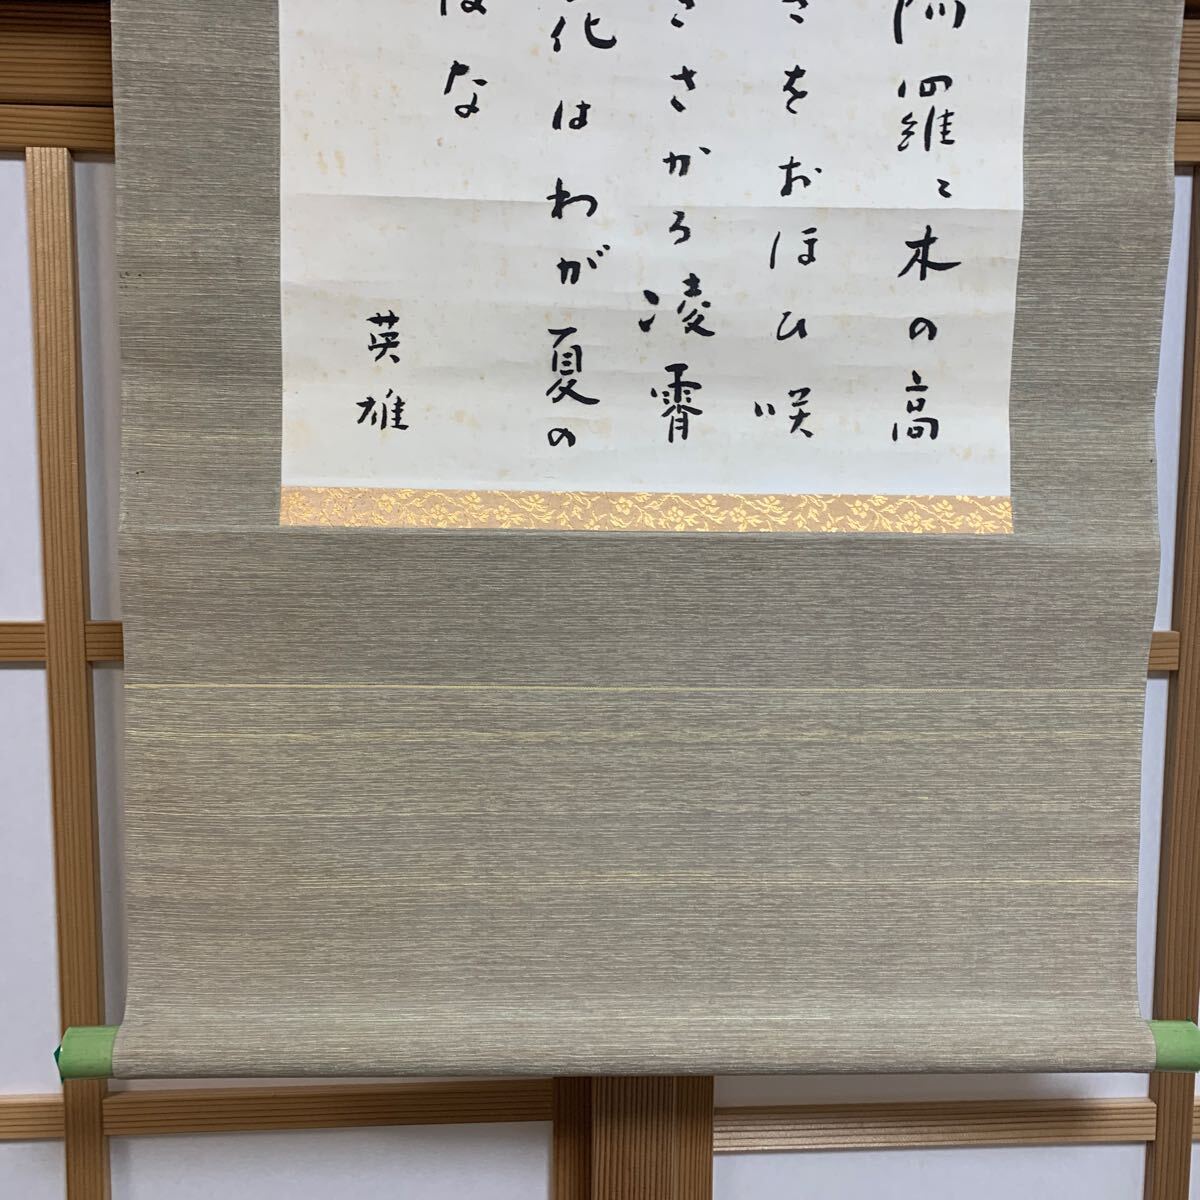 阿羅々木の高
さをおほひ咲
きさかる凌霄
花はわが夏の
はな
英雄